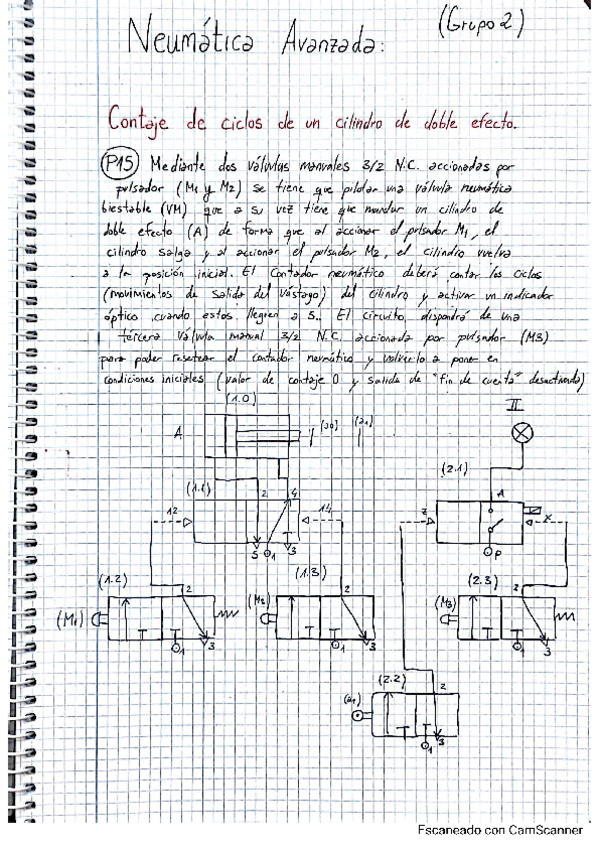 (Grupo 2)
Neumática Avanzada:
Contaje de ciclos de un cilindro de doble efecto.
P15) Mediante dos válvulas manuales 3/2 N.C. accionadas por
pulsador (M1 y M2) se tiene que pilotar una válvula neumática
biestable (VM) que a su vez tiene que mandar un cilindro de
doble efecto (A) de forma que al accionar el pulsador M1, el
cilindro salga y al accionar el pulsador M2, el cilindro vuelva
a la posición inicial. El contador neumático deberá contar los ciclos
(movimientos de salida del vástago) del cilindro y activar un indicador
óptico cuando estos lleguen a 5. El circuito dispondrá de una
tercera válvula manual 3/2 N.C. accionada por pulsador (M3)
para poder resetear el contador neumático y volverlo a poner en
condiciones iniciales (valor de contaje 0 y salida de "fin de cuenta" desactivada)
(1.0) II
A (a0) (a1)
(2.1)
(1.1) 2 4 A
12 14 Z X
5 1 3 P
(1.2) 2 (1.3) 2 (2.3) 2
(M1) (M2) (M3)
1 3 1 3 1 3
(2.2) 2
(a1)
1 3
Escaneado con CamScanner